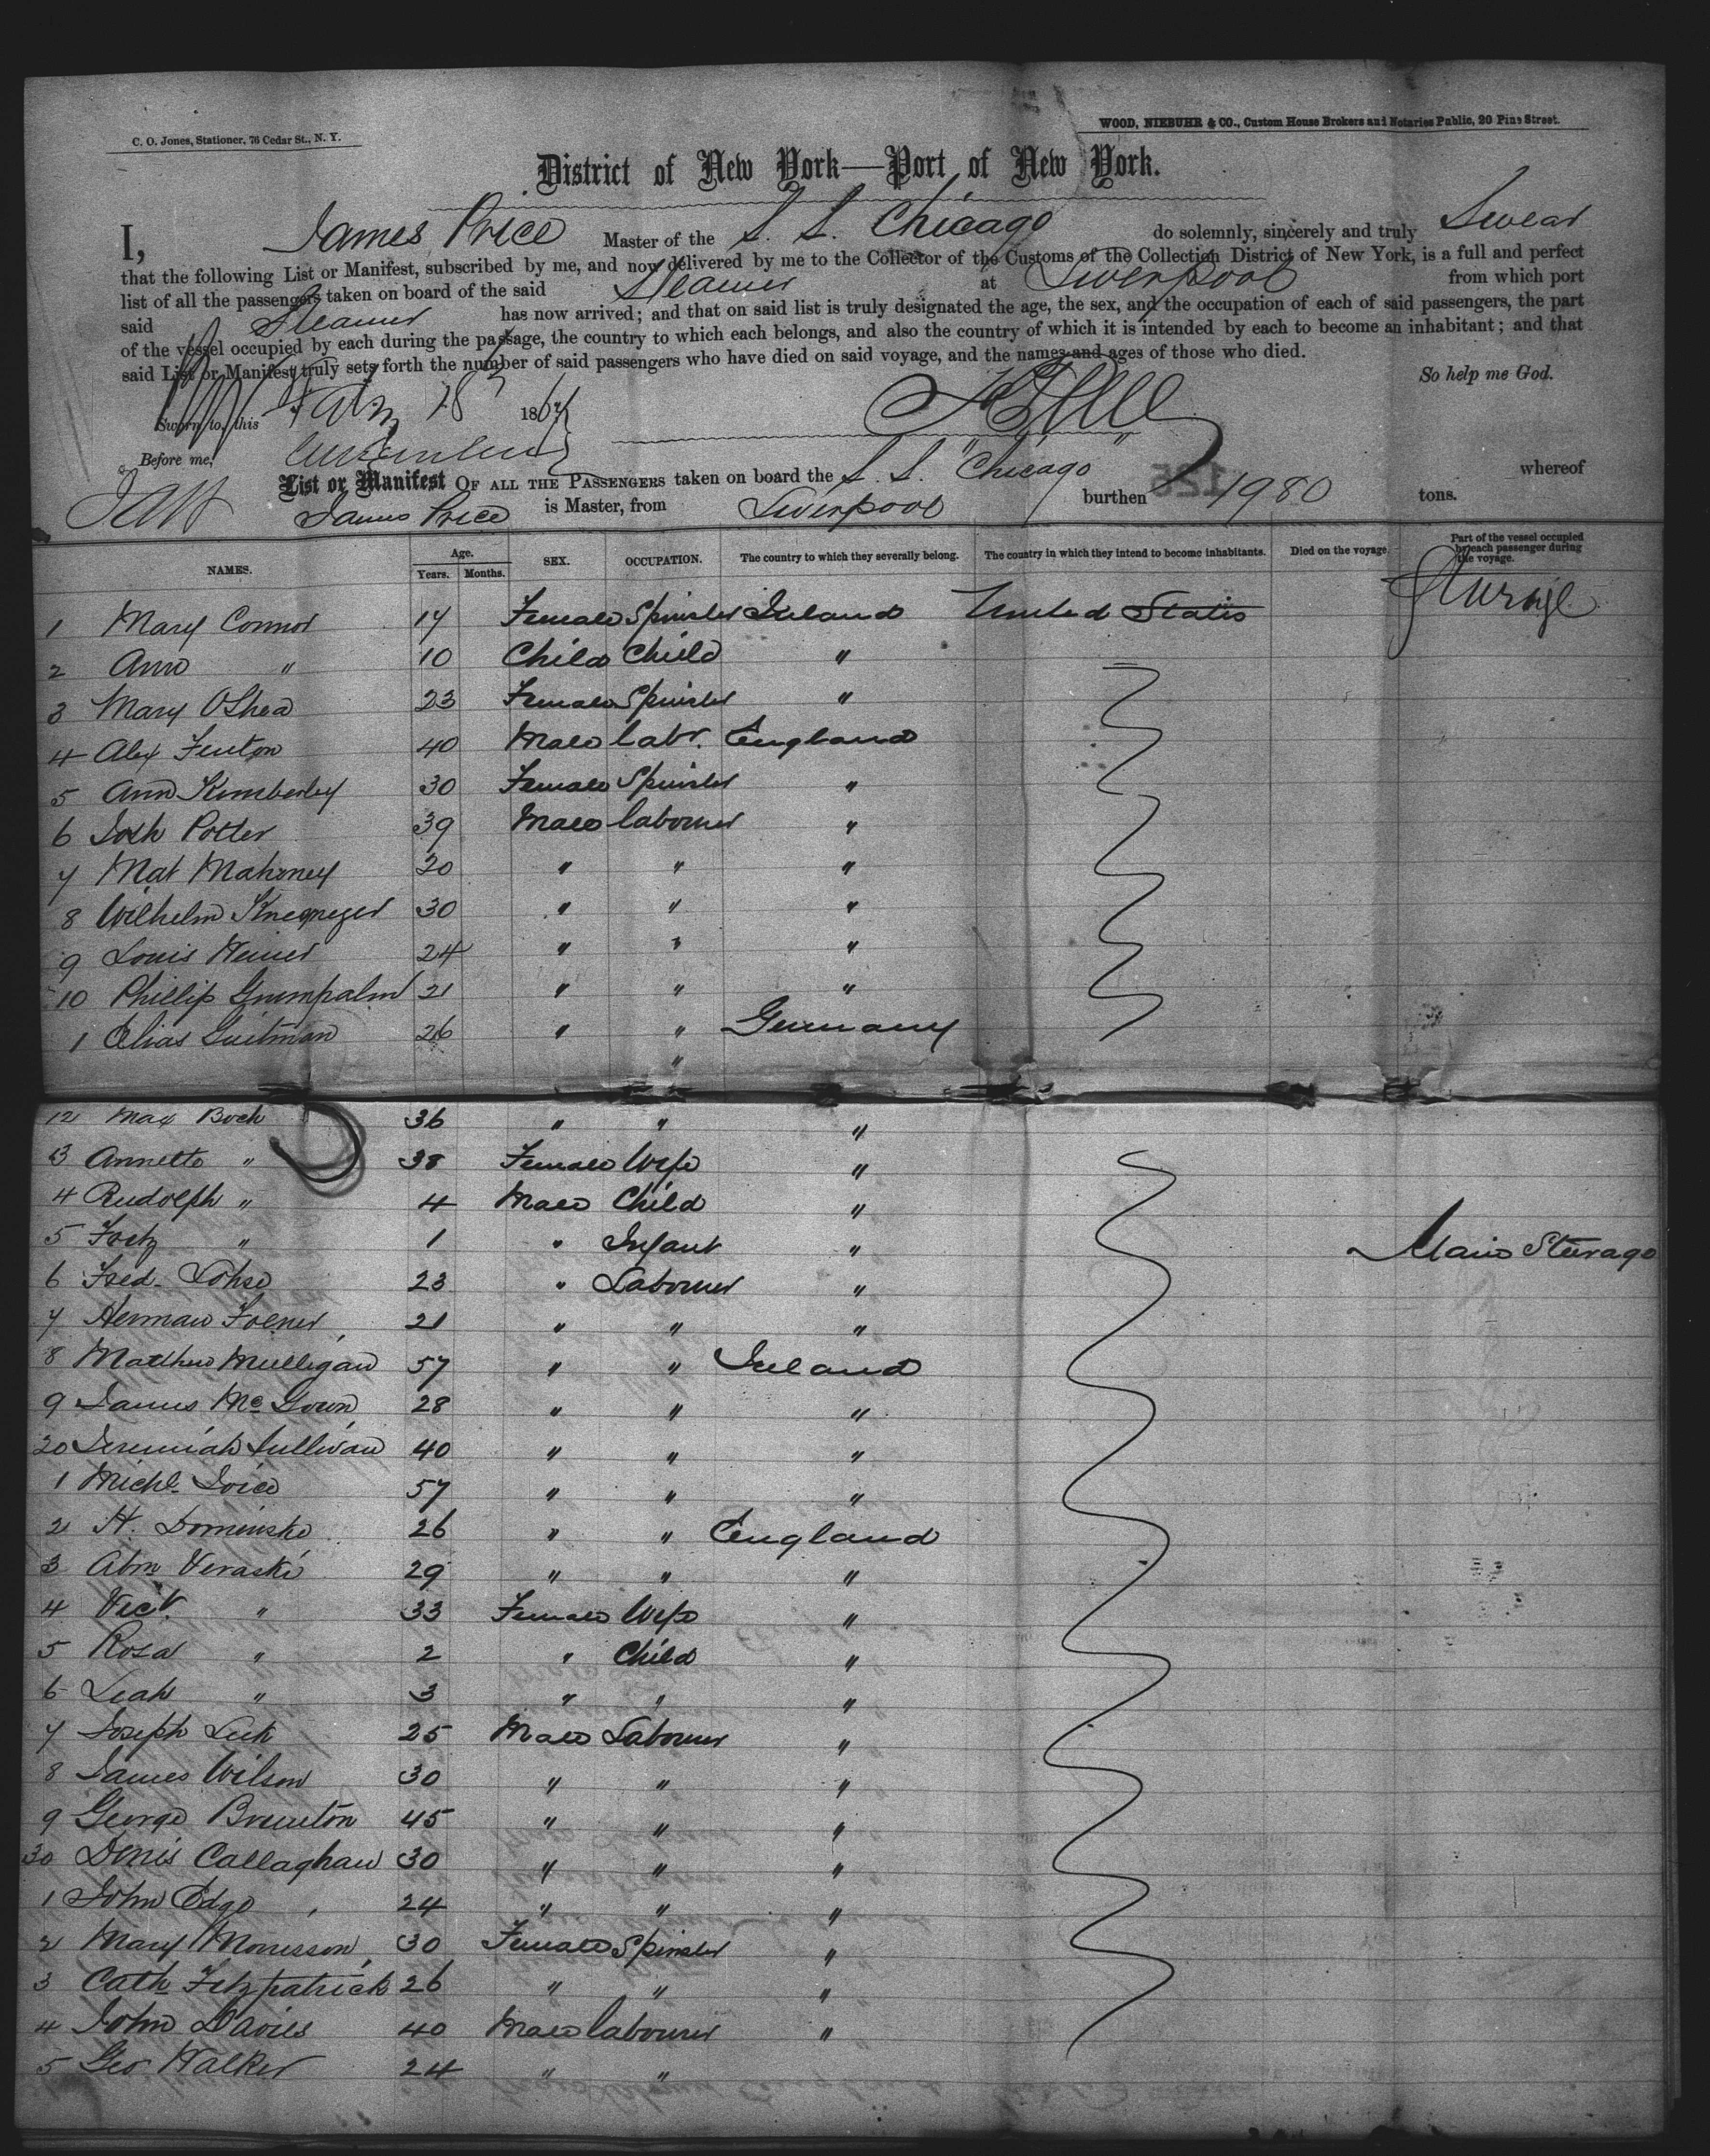 C. O. Jones, Stationer, 76 Cedar St., N. Y.
WOOD, NIEBUHR & CO., Custom House Brokers and Notaries Public, 20 Pine Street.
District of New York—Port of New York.
I, James Price Master of the S. S. Chicago do solemnly, sincerely and truly Swear
that the following List or Manifest, subscribed by me, and now delivered by me to the Collector of the Customs of the Collection District of New York, is a full and perfect
list of all the passengers taken on board of the said Steamer at Liverpool from which port
said Steamer has now arrived; and that on said list is truly designated the age, the sex, and the occupation of each of said passengers, the part
of the vessel occupied by each during the passage, the country to which each belongs, and also the country of which it is intended by each to become an inhabitant; and that
said List or Manifest truly sets forth the number of said passengers who have died on said voyage, and the names and ages of those who died.
So help me God.
Sworn to, this 18 1867
Before me,
List or Manifest OF ALL THE PASSENGERS taken on board the S. S. "Chicago" whereof
James Price is Master, from Liverpool burthen 1980 tons.
NAMES. Age. Years. Months. SEX. OCCUPATION. The country to which they severally belong. The country in which they intend to become inhabitants. Died on the voyage. Part of the vessel occupied by each passenger during the voyage.
1 Mary Connor 17 Female Spinster Ireland United States Steerage
2 Ann " 10 Child Child "
3 Mary OShea 23 Female Spinster "
4 Alex Fenton 40 Male Labr. England
5 Ann Kimberley 30 Female Spinster "
6 Josh Potter 39 Male Labourer "
7 Mat Mahoney 20 " " "
8 Wilhelm 30 " " "
9 Louis 24 " " "
10 Phillip Grumpalm 21 " " "
1 Elias Guitman 26 " " Germany
"
12 Max Boch 36 " " "
13 Annette " 38 Female Wife "
4 Rudolph " 4 Male Child "
5 Fritz " 1 " Infant " Main Steerage
6 Fred. Lohse 23 " Labourer "
7 Herman 21 " " "
8 Matthew Mulligan 57 " " Ireland
9 James McGown 28 " " "
20 Jeremiah Sullivan 40 " " "
1 Michl. Joice 57 " " "
2 H. Dominske 26 " " England
3 Abm Veraski 29 " " "
4 Vict. " 33 Female Wife "
5 Rosa " 2 " Child "
6 Leah " 3 " " "
7 Joseph Leek 25 Male Labourer "
8 James Wilson 30 " " "
9 George Brewton 45 " " "
30 Denis Callaghan 30 " " "
1 John Edge 24 " " "
2 Mary Morrisson 30 Female Spinster "
3 Cath Fitzpatrick 26 " " "
4 John Davies 40 Male Labourer "
5 Geo Walker 24 " "